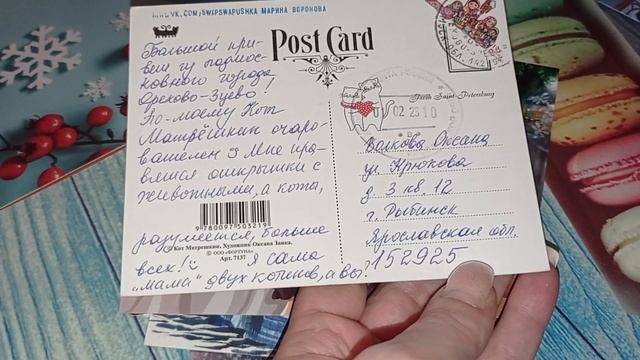 VK.COM/SWAPSWAPUSHKA МАРИНА ВОРОНОВА
Post Card
Большой при-
вет из подмос-
ковного города
Орехово-Зуево!
По-моему Кот
Матрёшкин очаро-
вателен :) Мне нра-
вятся открытки с
животными, а кота,
9 780097 503219
разумеется, больше
Кот Матрешкин. Художник Оксана Заика.
© ООО «ФОРТУНА»
Арт. 7137
всех! Я сама
"мама" двух котиков, а вы?
From Saint-Petersburg
02 23 10
Волкова Оксана
ул. Крюкова
д. 3 кв. 12
г. Рыбинск
Ярославская обл.
152925